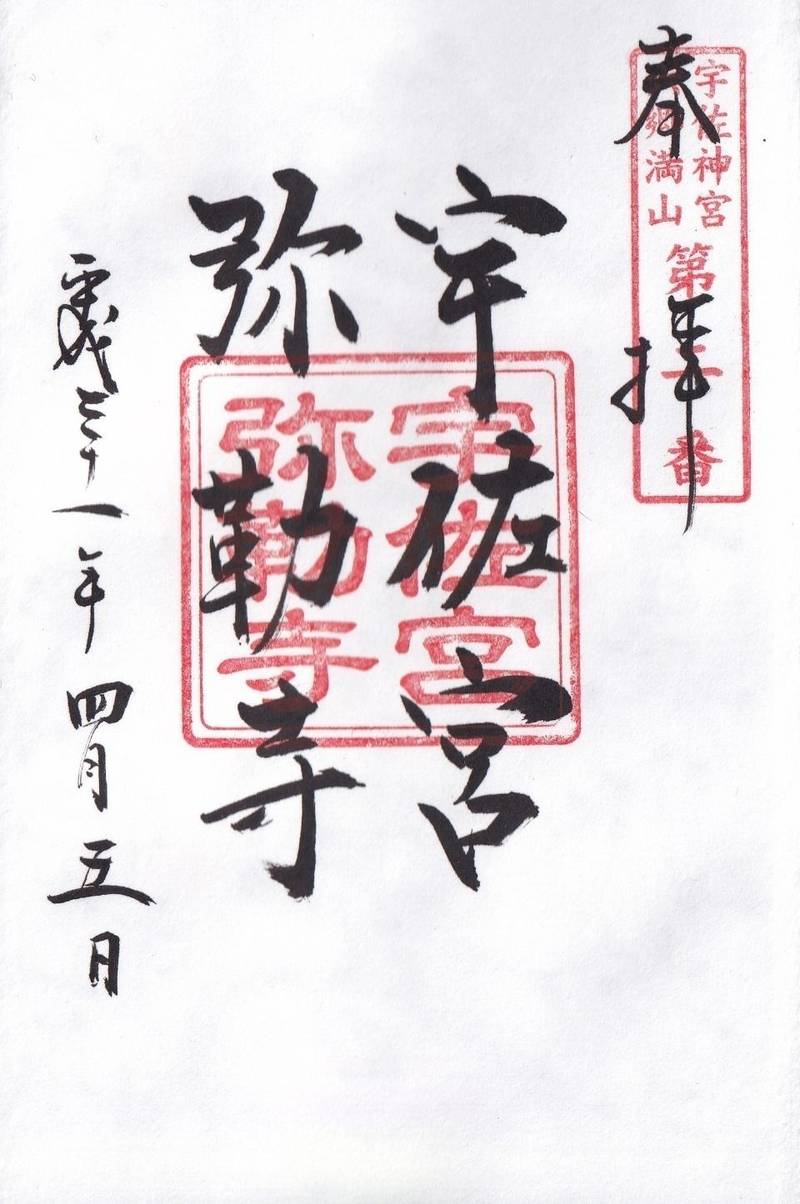 奉拝
宇佐神宮
郷満山
第 番
宇佐宮
弥勒寺
宇佐宮
弥勒寺
平成三十一年四月五日